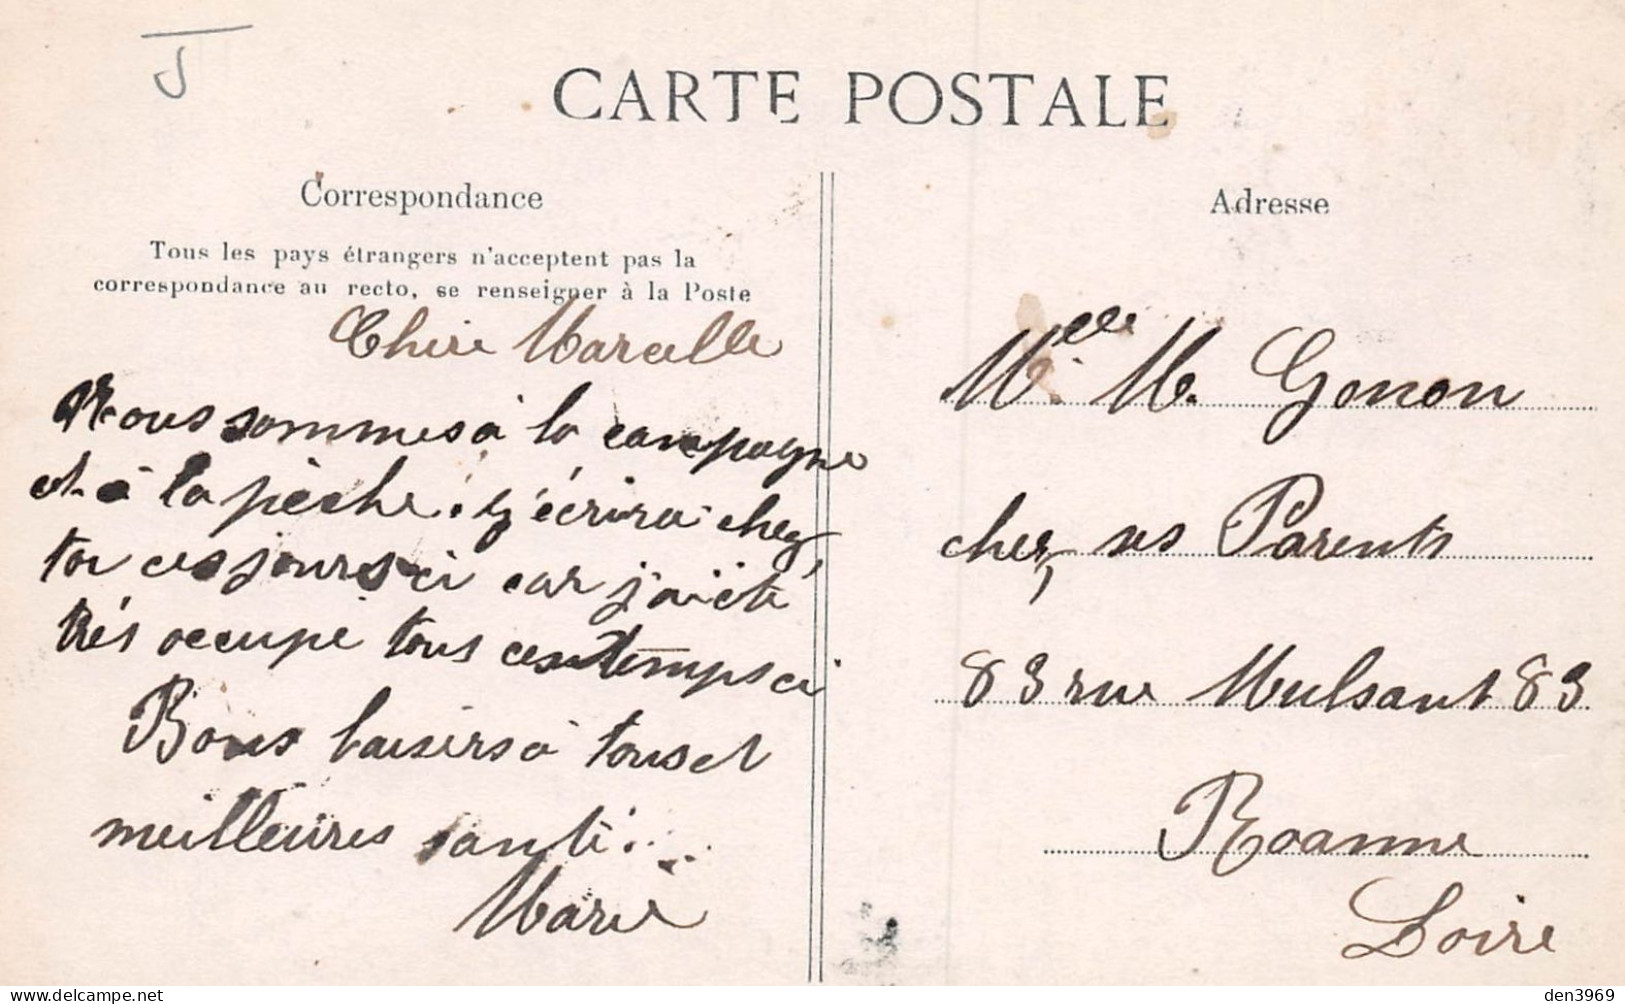 J
CARTE POSTALE
Correspondance
Tous les pays étrangers n'acceptent pas la
correspondance au recto, se renseigner à la Poste
Chère Marcelle
Nous sommes à la campagne
et à la pèche. J'écrirai chez
toi ces jours ci car j'ai été
très occupé tous ces temps ci
Bons baisers à tous et
meilleures santé...
Marie
Adresse
Melle M. Gonon
chez ses Parents
83 rue Mulsant 83
Roanne
Loire
den3969